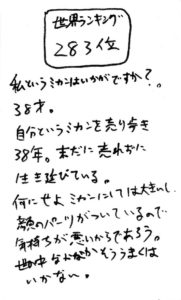 世界ランキング
283位
私というミカンはいかがですか?。
38才。
自分というミカンを売り歩き
38年。まだに売れずに
生き延びている。
何にせよミカンにしては大きいし、
顔のパーツがついているので
気持ちが悪いからであろう。
世の中なかなかもううまくは
いかない。